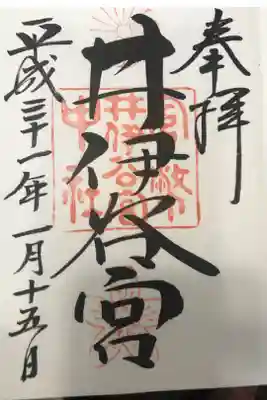 奉拝
井伊谷宮
平成三十一年一月十五日
官幣
井伊谷宮
中社